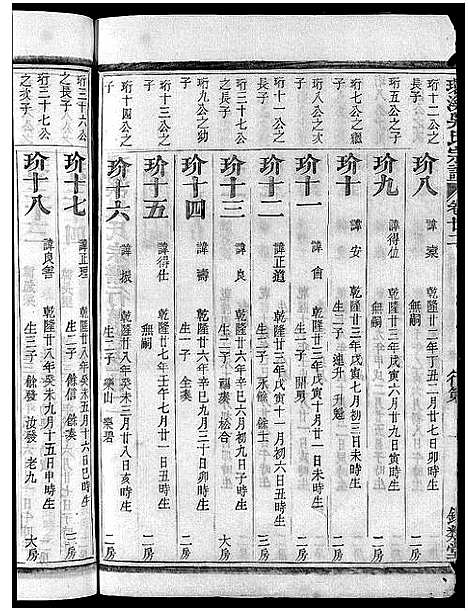 珩十二公之子
玠八
諱棠
乾隆廿二年丁丑二月廿七日卯時生
無嗣
二房
珩五公之子
玠九
諱得位
乾隆廿三年戊寅六月廿九日寅時生
無嗣
二房
珩七公之繼子
玠十
諱安
乾隆廿三年戊寅七月初三日未時生
生二子 連升 升魁
二房
珩八公之次子
玠十一
諱會
乾隆廿三年戊寅十月廿一日未時生
生一子
二房
珩十一公之長子
玠十二
諱正道
乾隆廿三年戊寅十一月初六日丑時生
生二子 永餘 餘士
二房
珩三十七公之長子
玠十三
乾隆廿六年辛巳六月初九日子時生
生二子 福湊 松合
大房
珩九公之幼子
玠十四
諱壽
乾隆廿六年辛巳九月三十日卯時生
生一子 全湊
二房
玠十五
諱得仕
乾隆廿七年壬午七月廿一日丑時生
無嗣
二房
珩十四公之子
玠十六
諱振
乾隆廿八年癸未三月廿八日亥時生
生二子 樂山 樂碧
二房
珩三十六公之長子
玠十七
諱正理
乾隆廿八年癸未五月十六日巳時生
生二子 餘信 餘湊
三房
珩三十七公之次子
玠十八
諱良善
乾隆廿八年癸未九月十五日申時生
生三子 餘發 汝發 老九
大房